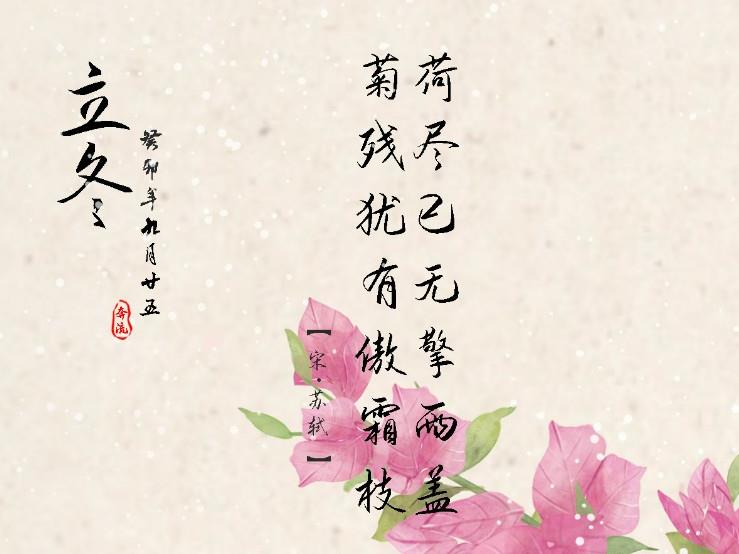 荷尽已无擎雨盖
菊残犹有傲霜枝
【宋·苏轼】
立冬
癸卯年九月廿五
奔流